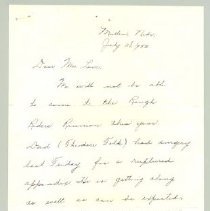 July 28, 1952
Dear Mr. Love:
We will not be able
to come to the Rough
Riders Reunion this year.
Dad (Theodore Folk) had surgery
last Friday for a ruptured
appendix. He is getting along
as well as can be expected.